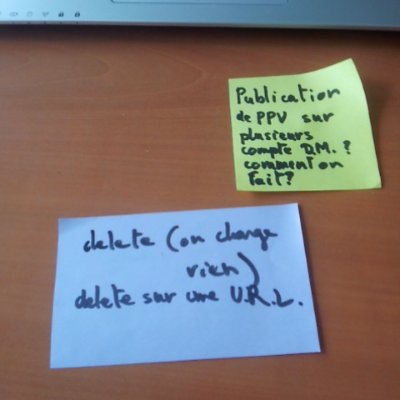 Publication
de PPV sur
plusieurs
compte D.M. ?
comment on
fait?
delete (on change
rien)
delete sur une U.R.L.